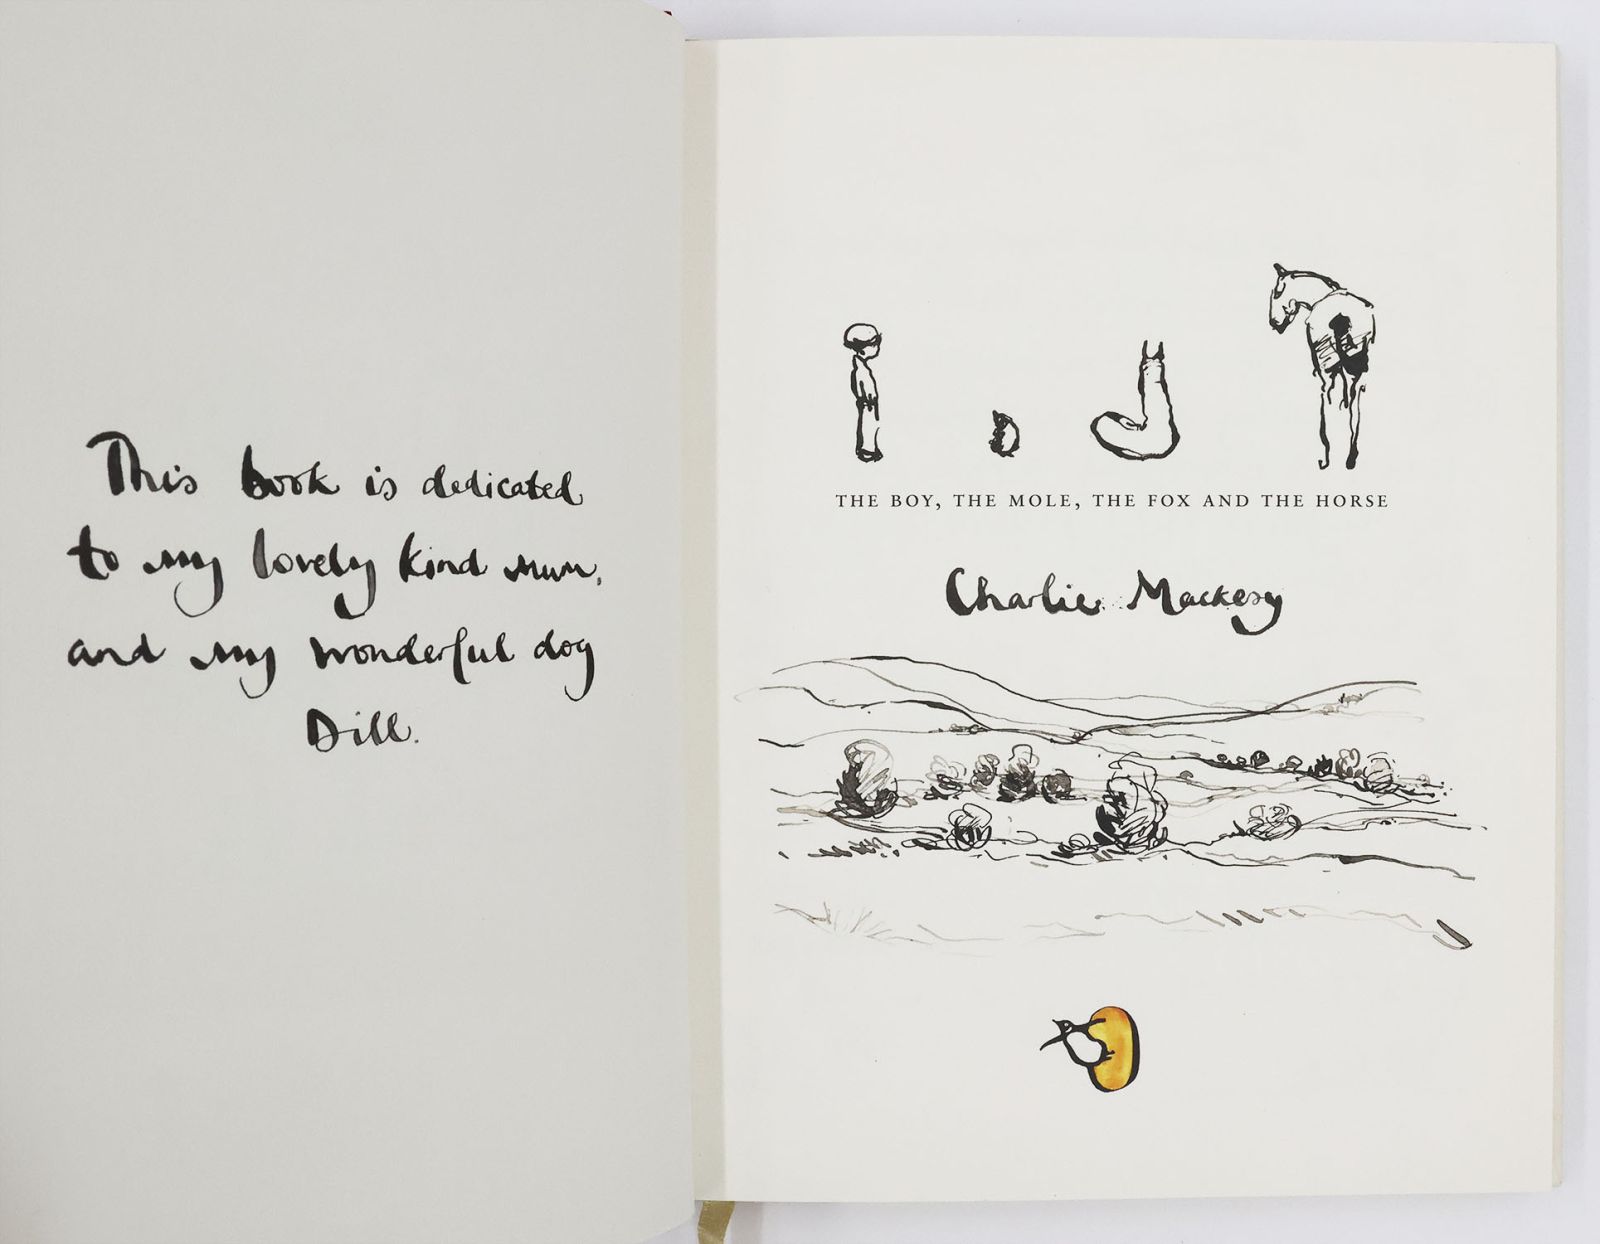 This book is dedicated
to my lovely kind mum,
and my wonderful dog
Dill.
THE BOY, THE MOLE, THE FOX AND THE HORSE
Charlie Mackesy